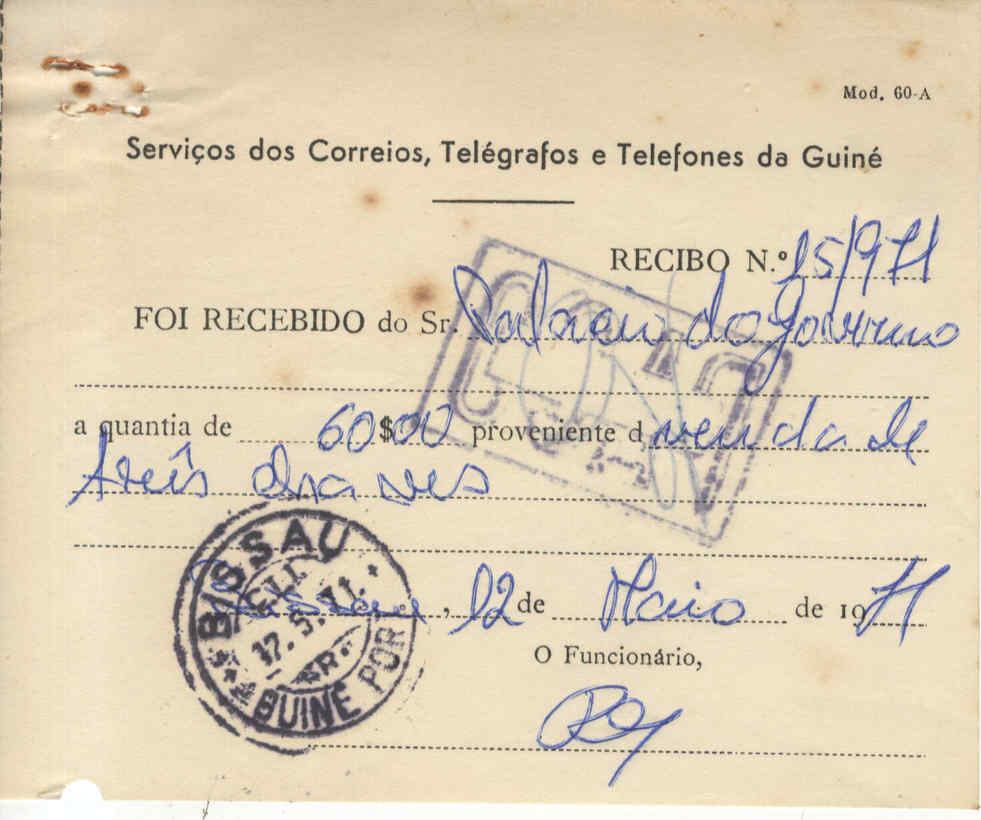 Mod. 60-A
Serviços dos Correios, Telégrafos e Telefones da Guiné
RECIBO N.º 15/971
FOI RECEBIDO do Sr. Palacio do Governo
a quantia de 60$00 proveniente d venda de
três chaves
Bissau, 12 de Maio de 1971
O Funcionário,
BISSAU
12.5.71
GUINÉ POR